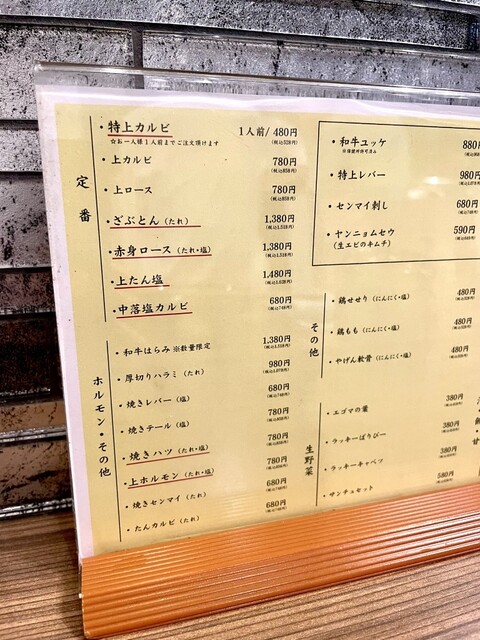 定番
・特上カルビ 1人前/480円
☆お一人様1人前までご注文頂けます (税込528円)
・上カルビ 780円
(税込858円)
・上ロース 780円
(税込858円)
・ざぶとん(たれ) 1,380円
(税込1,518円)
・赤身ロース(たれ・塩) 1,380円
(税込1,518円)
・上たん塩 1,480円
(税込1,628円)
・中落塩カルビ 680円
(税込748円)
ホルモン・その他
・和牛はらみ ※数量限定 1,380円
(税込1,518円)
・厚切りハラミ(たれ) 980円
(税込1,078円)
・焼きレバー(塩) 680円
(税込748円)
・焼きテール(塩) 780円
(税込858円)
・焼きハツ(たれ・塩) 780円
(税込858円)
・上ホルモン(たれ・塩) 780円
(税込858円)
・焼きセンマイ(たれ) 680円
(税込748円)
・たんカルビ(たれ) 680円
(税込748円)
・和牛ユッケ 880円
・特上レバー 980円
・センマイ刺し 680円
・ヤンニョムセウ 590円
(生エビのキムチ)
その他
・鶏せせり(にんにく・塩) 480円
(税込528円)
・鶏もも(にんにく・塩) 480円
(税込528円)
・やげん軟骨(にんにく・塩) 480円
(税込528円)
生野菜
・エゴマの葉 380円
・ラッキーぱりぴー 380円
・ラッキーキャベツ 380円
・サンチュセット 580円